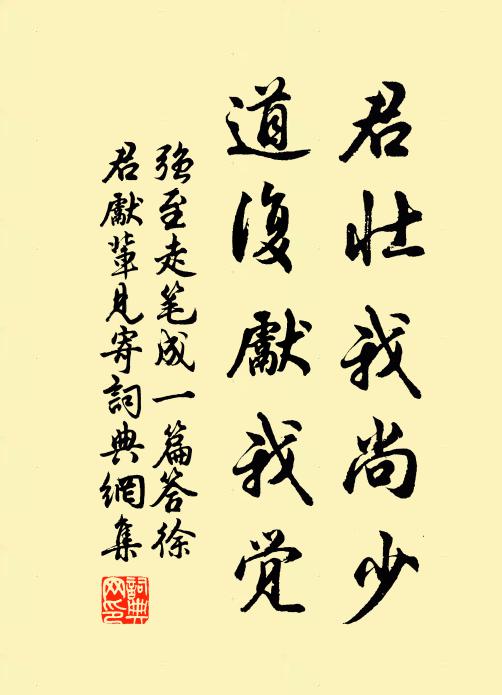 君壮我尚少
道復獻我覺
強至走笔成一篇答徐
君獻輩見寄詞典網集
詞典网印